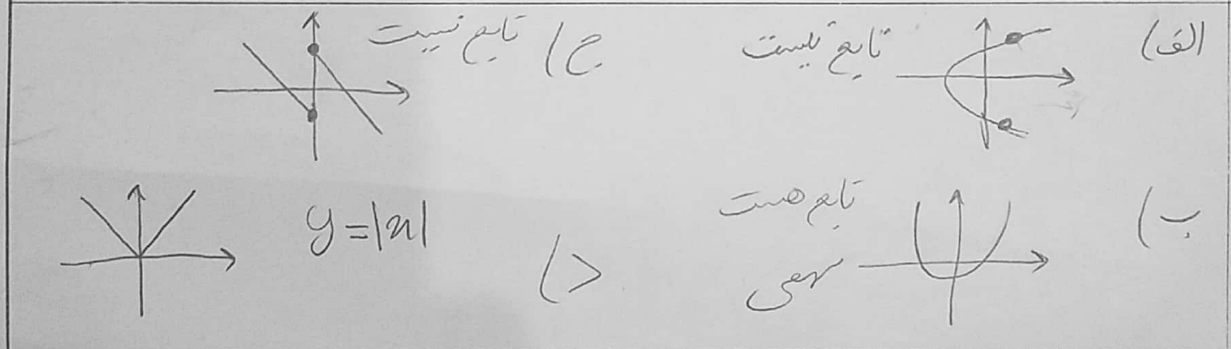 الف) تابع نیست
ج) تابع نیست
ب) تابع هست
سهمی
د) y=|x|